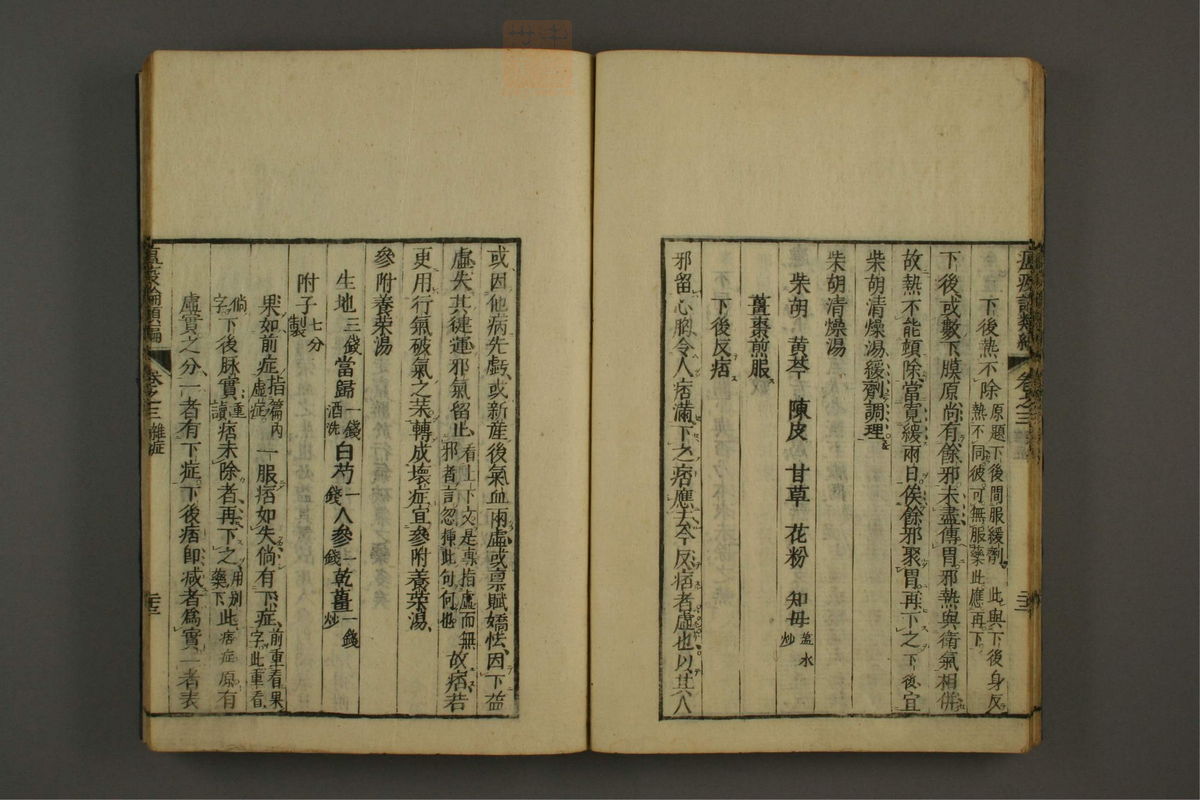 瘟疫論類編 卷之三 雜症 二十二
下後熱不除 原題下後間服緩劑 此與下後身反熱不同彼可無服藥此應再下
下後或數下膜原尚有餘邪未盡傳胃邪熱與衛氣相併
故熱不能頓除當寬緩兩日俟餘邪聚胃再下之下後宜
柴胡清燥湯緩劑調理
柴胡清燥湯
柴胡 黃芩 陳皮 甘草 花粉 知母 盐水炒
薑棗煎服
下後反痞
邪留心胸令人痞滿下之痞應去今反痞者虛也以其人
或因他病先虧或新產後氣血兩虛或禀賦嬌怯因下益
虛失其健運邪氣留止 看上下文是專指虛而無邪者言忽揷此句何也 故痞若
更用行氣破氣之藥轉成壞症宜參附養榮湯
參附養榮湯
生地 三錢 當歸 一錢酒洗 白芍 一錢 人參 一錢 乾薑 一錢炒
附子 七分製
果如前症 指篇內虛症 一服痞如失倘有下症 前重看果字此重看倘字
下後脉實 重讀 痞未除者再下之 用别藥下 此痞症原有
虛實之分一者有下症下後痞卽减者爲實一者表
瘟疫論類編 卷之三 雜症 二十三